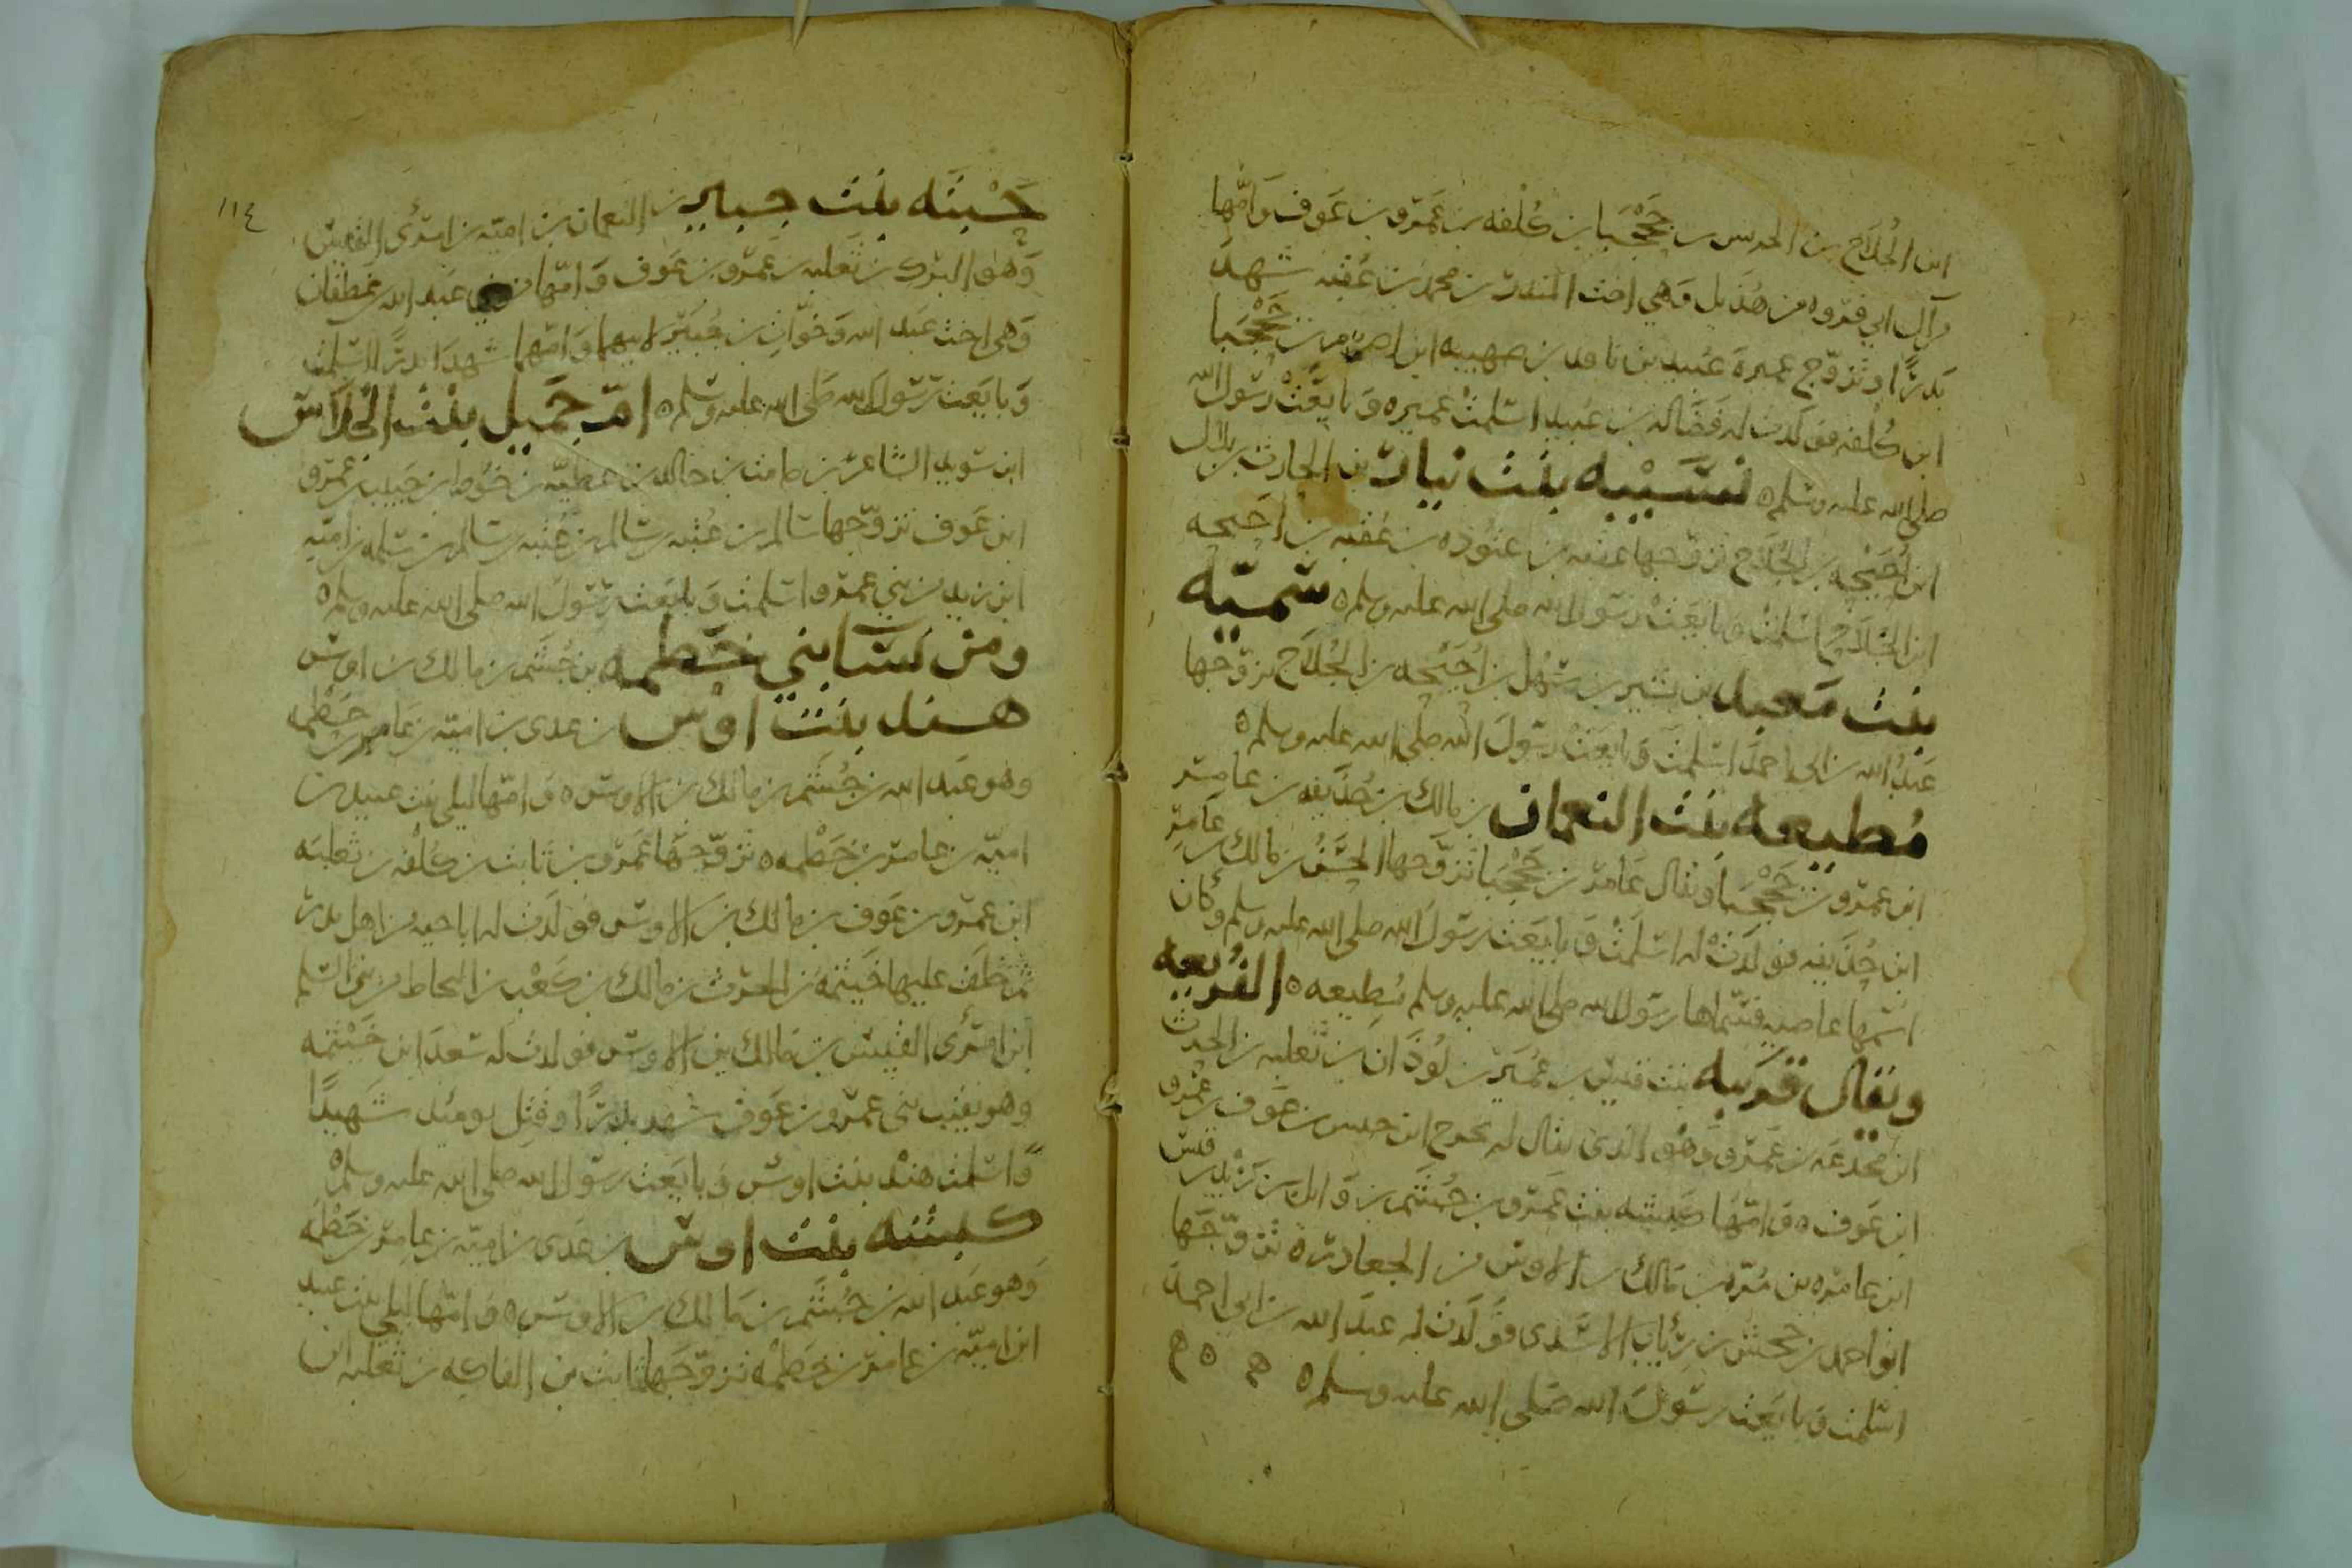 ابن الجُلَاح بن الحريس بن جَحْجَبَا بن كُلْفه بن عَمرو بن عَوف وَامّها
من آل ابي فروه من هُذَيل وَهي اخت المنذر بن محمد بن عُقبه شهدَ
بَدرًا وتزوّج عميرة عُبيد بن نافد بن صهيبه ابن اصرم بن جَحْجَبا
ابن كُلفه فولَدت له فَضَاله بن عُبيد اسلمتْ عميره وَبايَعَتْ رسُول الله
صلى الله عليه وسلم ه نُسَيْبه بنت نيار بن الحارث بن بلال
ابن اُحَيْحه بن الجُلَاح تزوّجها عقبه بن عتوده بن عُقبه بن اُحَيحه
ابن الجُلَاح اسلمتْ وبايَعَتْ رسُول الله صلى الله عليه وسلم ه سُميّه
بنت مَعبد بن بشير بن سَهْل بن اُحَيْحه بن الجُلَاح تزوّجها
عَبدُ الله بن ابي احمدَ اسلمت وَبايعَتْ رسُولَ الله صلى الله عليه وسلم ه
مُطيعه بنت النعمان بن مالك بن حُذَيفه بن عامر
ابن عمرو بن جَحْجَبَا ويقال عَامر بن جَحْجَبا تزوّجها الحَسَن بن مالك بن عَامر
ابن حُذَيفه فولَدَتْ له اسلَمَتْ وَبايَعَت رسُولَ الله صلى الله عليه وسلم وَكان
اسمها عاصيه فسَمّاها رسُول الله صلى الله عليه وسلم مُطيعه ه الفُرَيعه
ويقال قَرِيبه بنت قيس بن عُمَير بن لُوذَان بن ثعلبه بن الحرث
ابن مجدعَه بن عَمرو وَهُو الذى يقال له بحرج ابن حنس بن عَوف بن عَمرو
ابن عَوف ه وَامّها كبيشه بنت عَمرو بن جُشَم بن وَائل بن زيد بن قيس
ابن عامره بن مُرّه بن مَالك بن الاوس من الجعادره ه تزوّجَها
ابو احمد بن جحش بن رئاب الاسَدى فوَلَدَت له عبدَ الله بن ابى احمدَ
اسلمت وَبايَعت رسُولَ الله صَلى الله عليه وسلم ه
١١٤
حَسَنَه بنت جبير بن النعمان بن اميّه بن امرئ القيس
وَهُو البُرَك بن ثَعلبه بن عَمرو بن عَوف وَامّها من بني عَبد الله بن غطفان
وَهى اخت عَبد الله وَخَوّات بن جُبَير لابيهما وَامّهما شهدَا بدرًا اسلمت
وَبايَعَت رسُولَ الله صَلى الله عليه وسلم ه ام جَميل بنْت الجُلَاس
ابن سُويد الشاعر بن صامت بن خالد بن عطيّه بن خَوْط بن حَبيب بن عمرو
ابن عَوف تزوّجها سَالم بن عُتبه بن سَالم بن عُتبه بن سَالم بن سَلمه بن اميّه
ابن زيد من بني عمرو اسلمت وَبايَعَت رسُول الله صلى الله عليه وسلم ه
ومن نسَآ بني خَطمه بن جُشَم بن مالك بن اوس
هند بنت اوْس بن عدى بن اميّه بن عَامر بن خَطمه
وهو عَبد الله بن جُشَم بن مالك بن الاوس ه وَامّها ليلى بنت عبيد بن
اميّه بن عامر بن خَطْمه ه تزوّجَها عَمرو بن ثابت بن كُلفه بن ثعلبَه
ابن عمرو بن عَوف بن مالك بن الاوس فولَدت له ابا حيه من اهل بدر
ثم خَلَف عليها خَيثمه بن الحرث بن مالك بن كعْب بن النحاط من بني السّلم
ابن امرئ القيس بن مَالك بن الاوس فولدت له سَعدَ ابن خَيْثمه
وهو نقيب بنى عمرو بن عَوف شهد بدرًا وقُتِل يومئذ شَهيدًا
وَاسلمت هنْد بنت اوس وَبايَعت رسُول الله صلى الله عليه وسلم ه
كبشه بنت اوس بن عَدى بن اميّه بن عامر بن خَطْمه
وَهو عَبد الله بن جُشَم بن مَالك بن الاوس ه وَامّها ليلى بنت عبيد
ابن اميّه بن عامر بن خَطْمه تزوّجَها ثابت بن الفاكه بن ثعلبه ابن